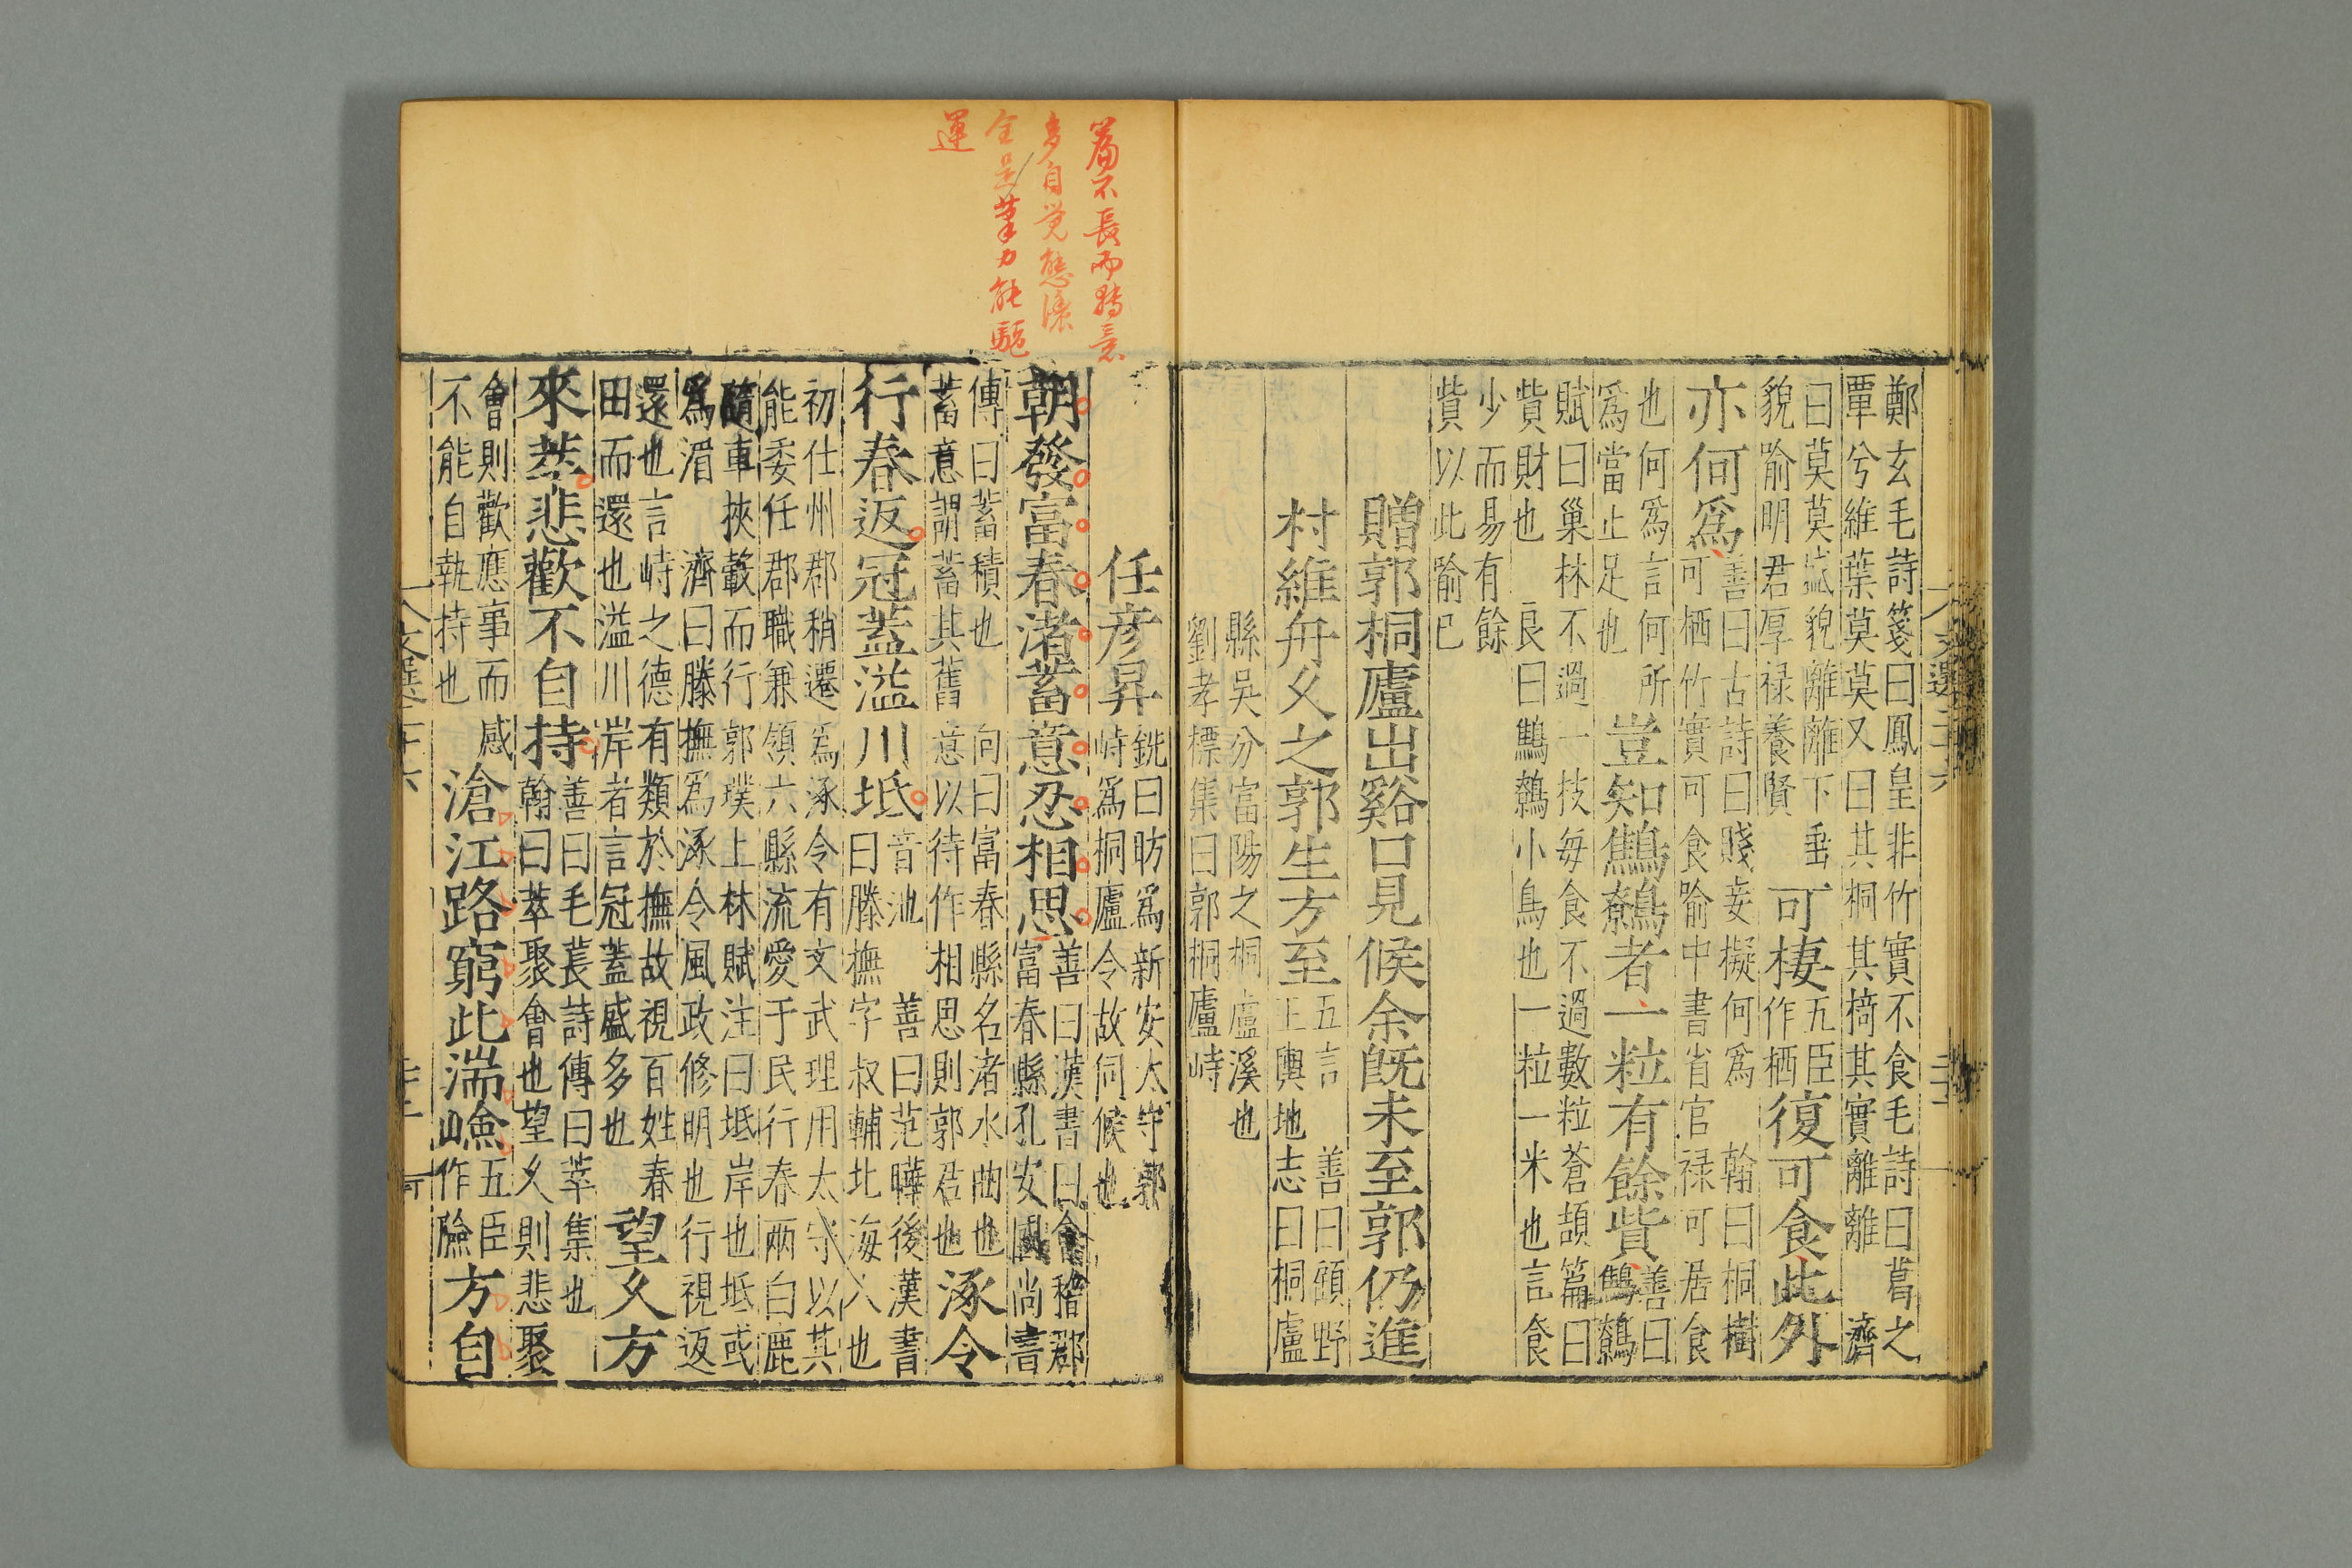 鄭玄毛詩箋曰鳳皇非竹實不食毛詩曰葛之
覃兮維葉莫莫又曰其桐其椅其實離離 濟
曰莫莫盛貌離離下垂
貌喻明君厚禄養賢
可棲
五臣
作栖
復可食此外
亦何為
善曰古詩曰賤妾擬何為 翰曰桐樹
可栖竹實可食喻中書省官禄可居食
也何為言何所
為當止足也
豈知鷦鷯者一粒有餘貲
善曰
鷦鷯
賦曰巢林不過一枝每食不過數粒蒼頡篇曰
貲財也 良曰鷦鷯小鳥也一粒一米也言食
少而易有餘
貲以此喻已
贈郭桐廬出谿口見候余既未至郭仍進
村維舟久之郭生方至
五言 善曰顧野
王輿地志曰桐廬
縣吳分富陽之桐廬溪也
劉孝標集曰郭桐廬峙
文選二十六
篇不長而轉意
多自覺態濃
全是筆力能驅
運
任彥昇
銑曰昉為新安太守郭
峙為桐廬令故伺候也
朝發富春渚蓄意忍相思
善曰漢書曰會稽郡
富春縣孔安國尚書
傳曰蓄積也 向曰富春縣名渚水曲也
蓄意謂蓄其舊意以待作相思則郭君也
涿令
行春返冠蓋溢川坻
音池 善曰范曄後漢書
曰滕撫字叔輔北海人也
初仕州郡稍遷為涿令有文武理用太守以其
能委任郡職兼領六縣流愛于民行春兩白鹿
隨車挾轂而行郭璞上林賦注曰坻岸也坻或
為湄 濟曰滕撫為涿令風政修明也行視返
還也言峙之德有類於撫故視百姓春
田而還也溢川岸者言冠蓋盛多也
望久方
來萃悲歡不自持
善曰毛萇詩傳曰萃集也
翰曰萃聚會也望久則悲聚
會則歡應事而感
不能自執持也
滄江路窮此湍嶮
五臣
作險
方自
文選二十六